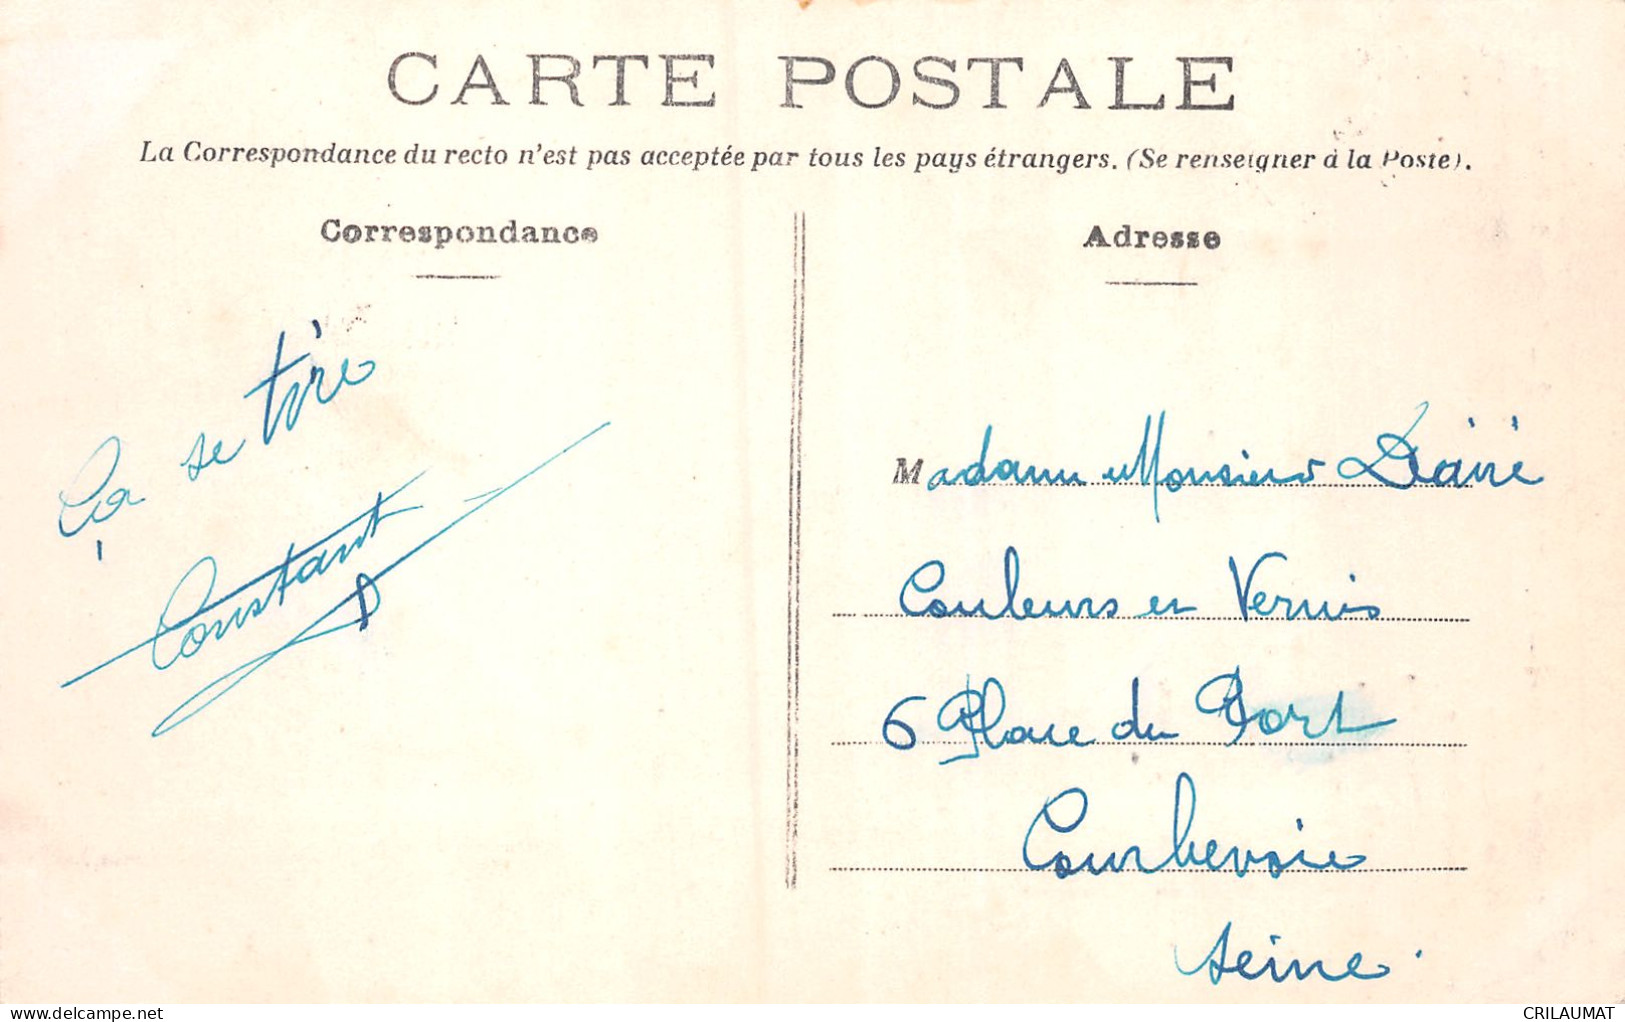 CARTE POSTALE
La Correspondance du recto n'est pas acceptée par tous les pays étrangers. (Se renseigner à la Poste).
Correspondance
Ça se tire
Constant
Adresse
Madame Monsieur
Couleurs et Vernis
6 Place du Port
Courbevoie
Seine.
delcampe.net
CRILAUMAT